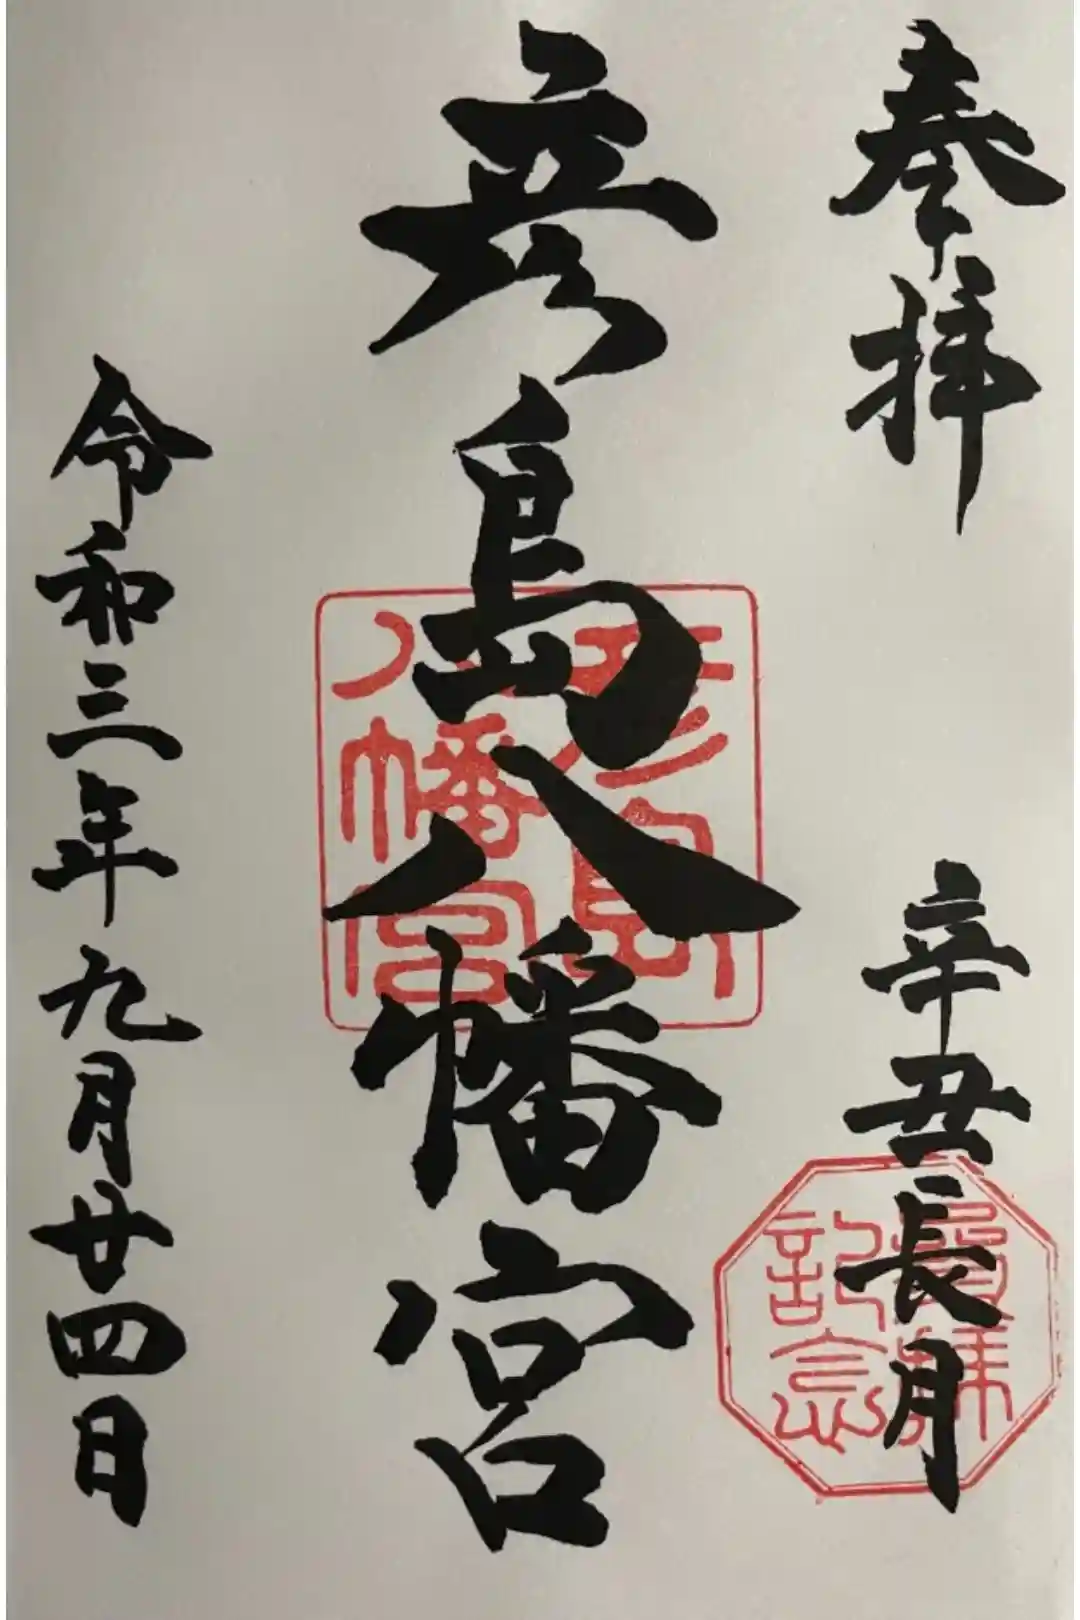 奉拝
辛丑長月
彦島八幡宮
令和三年九月廿四日
彦島
八幡宮
參拝
記念